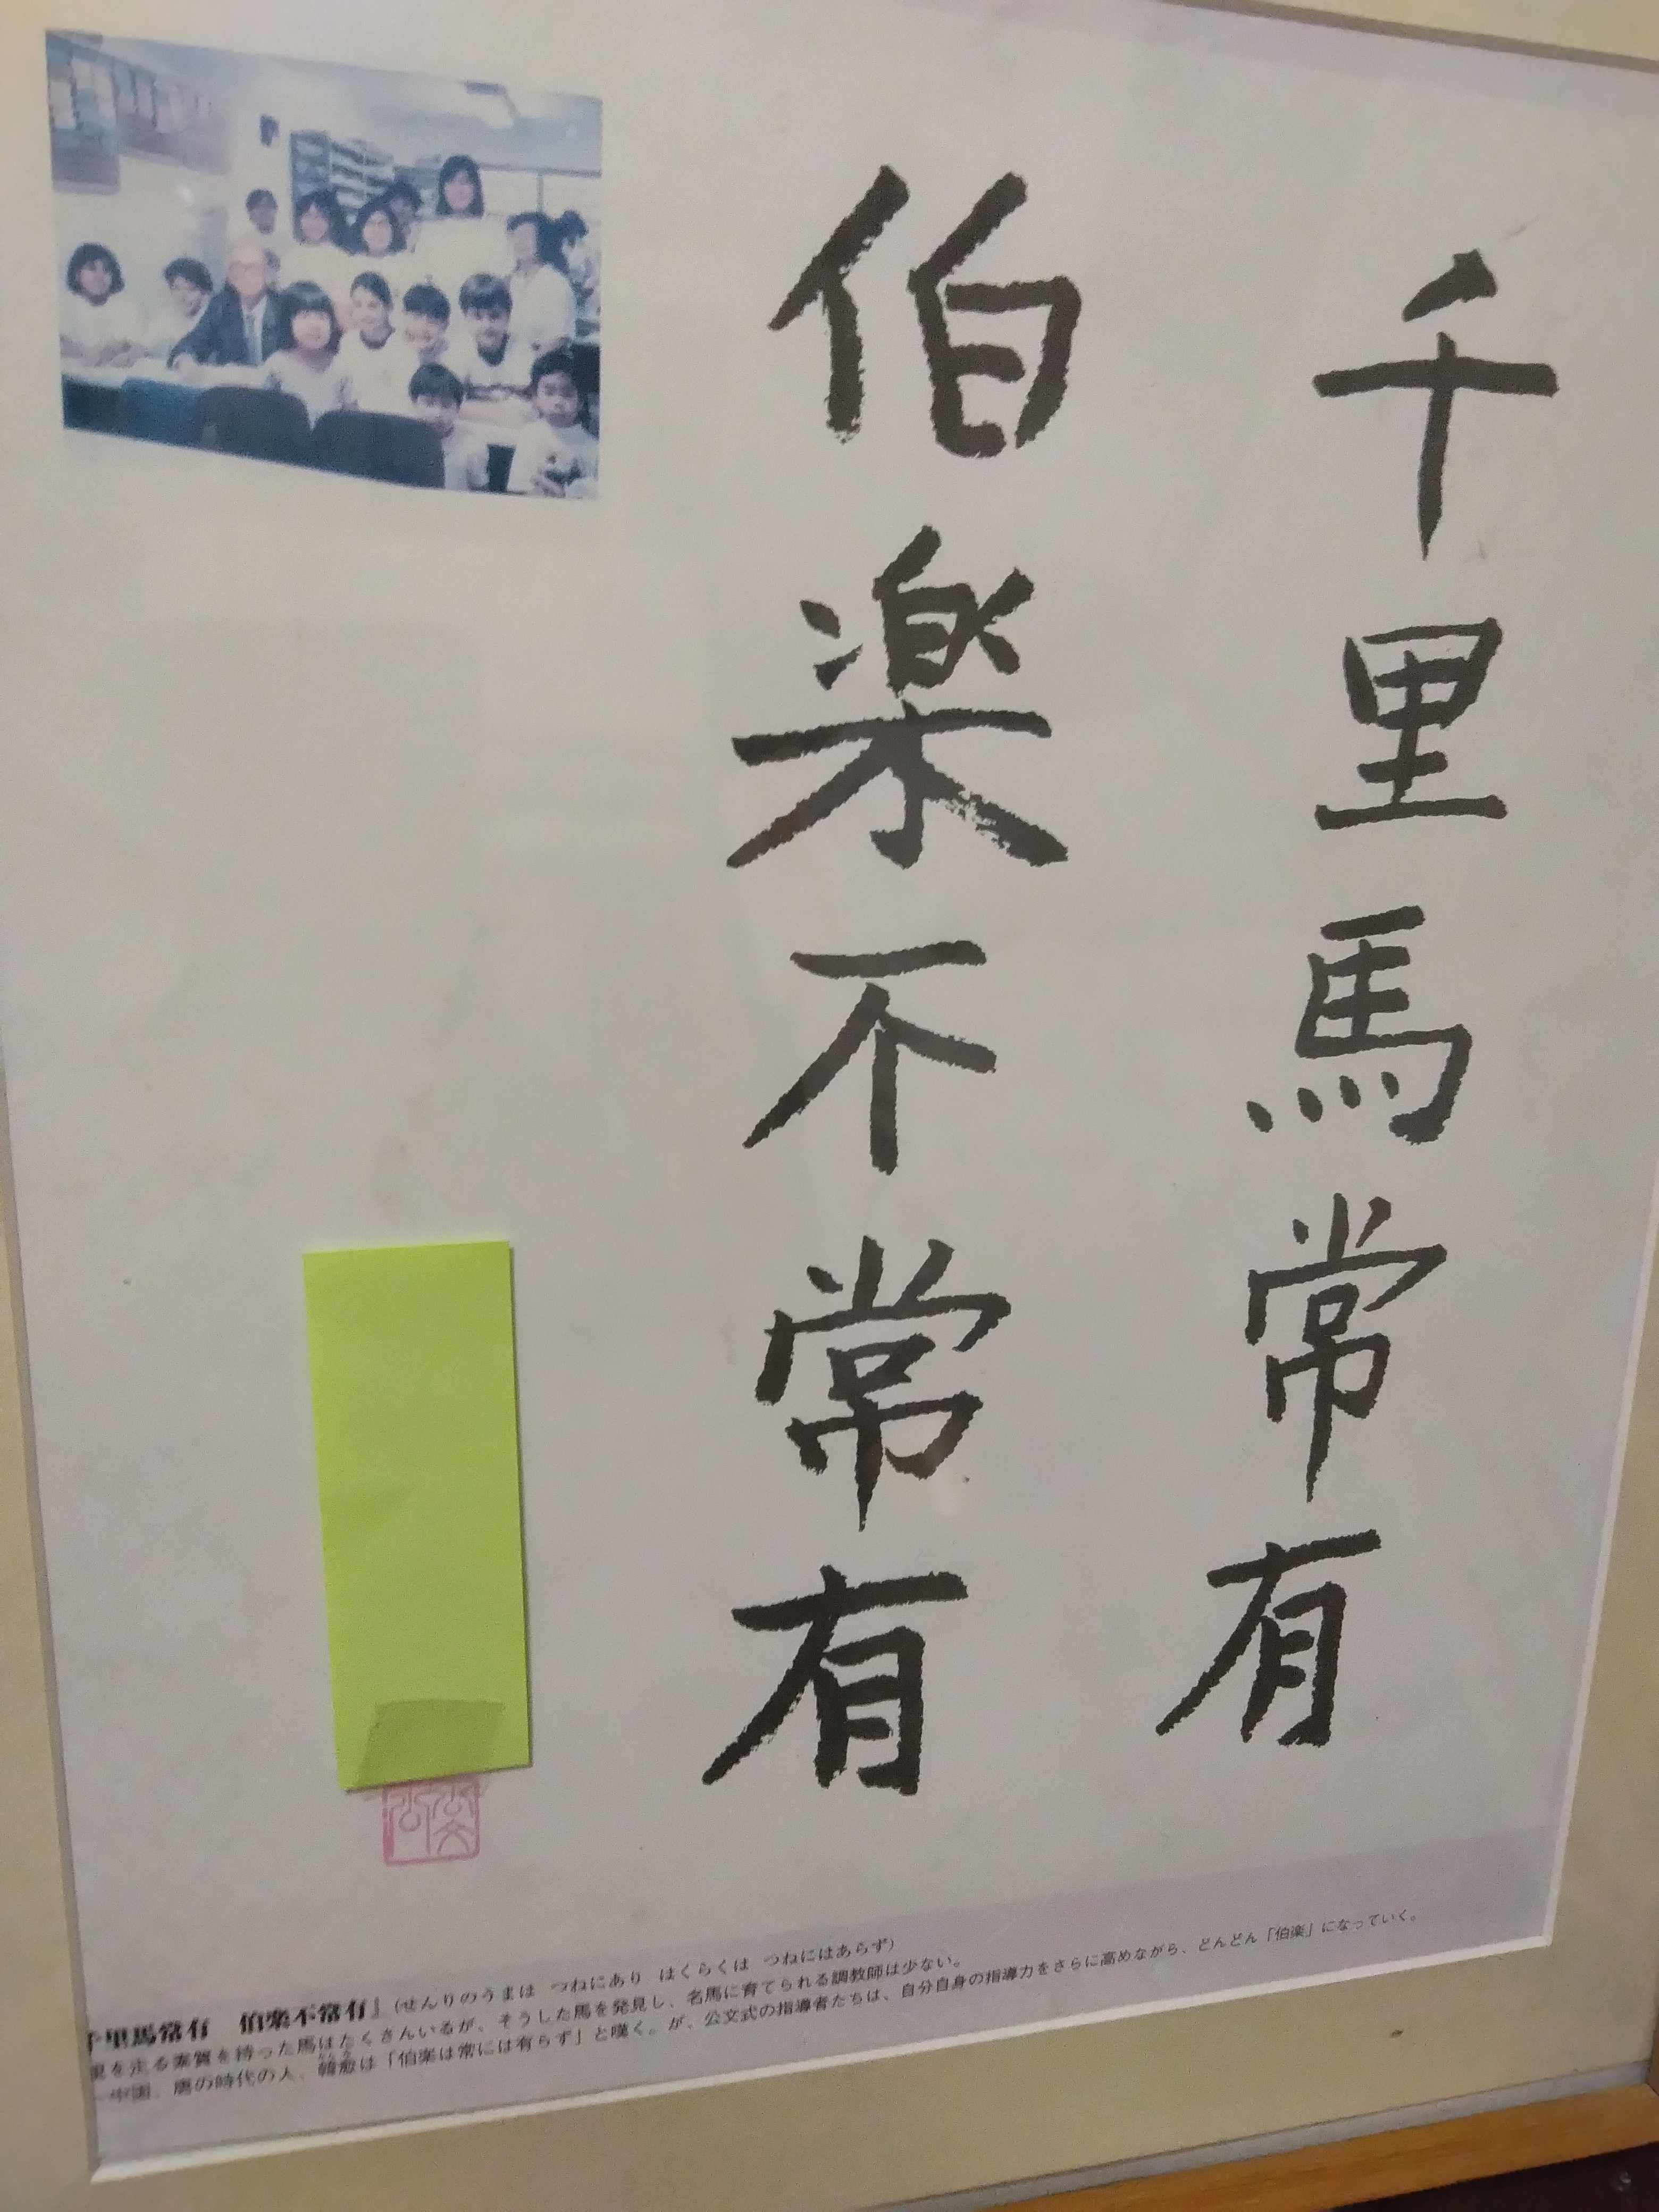 千里馬常有
伯楽不常有
千里馬常有　伯楽不常有』（せんりのうまは　つねにあり　はくらくは　つねにはあらず）
里を走る素質を持った馬はたくさんいるが、そうした馬を発見し、名馬に育てられる調教師は少ない。
中国、唐の時代の人、韓愈は「伯楽は常には有らず」と嘆く。が、公文式の指導者たちは、自分自身の指導力をさらに高めながら、どんどん「伯楽」になっていく。